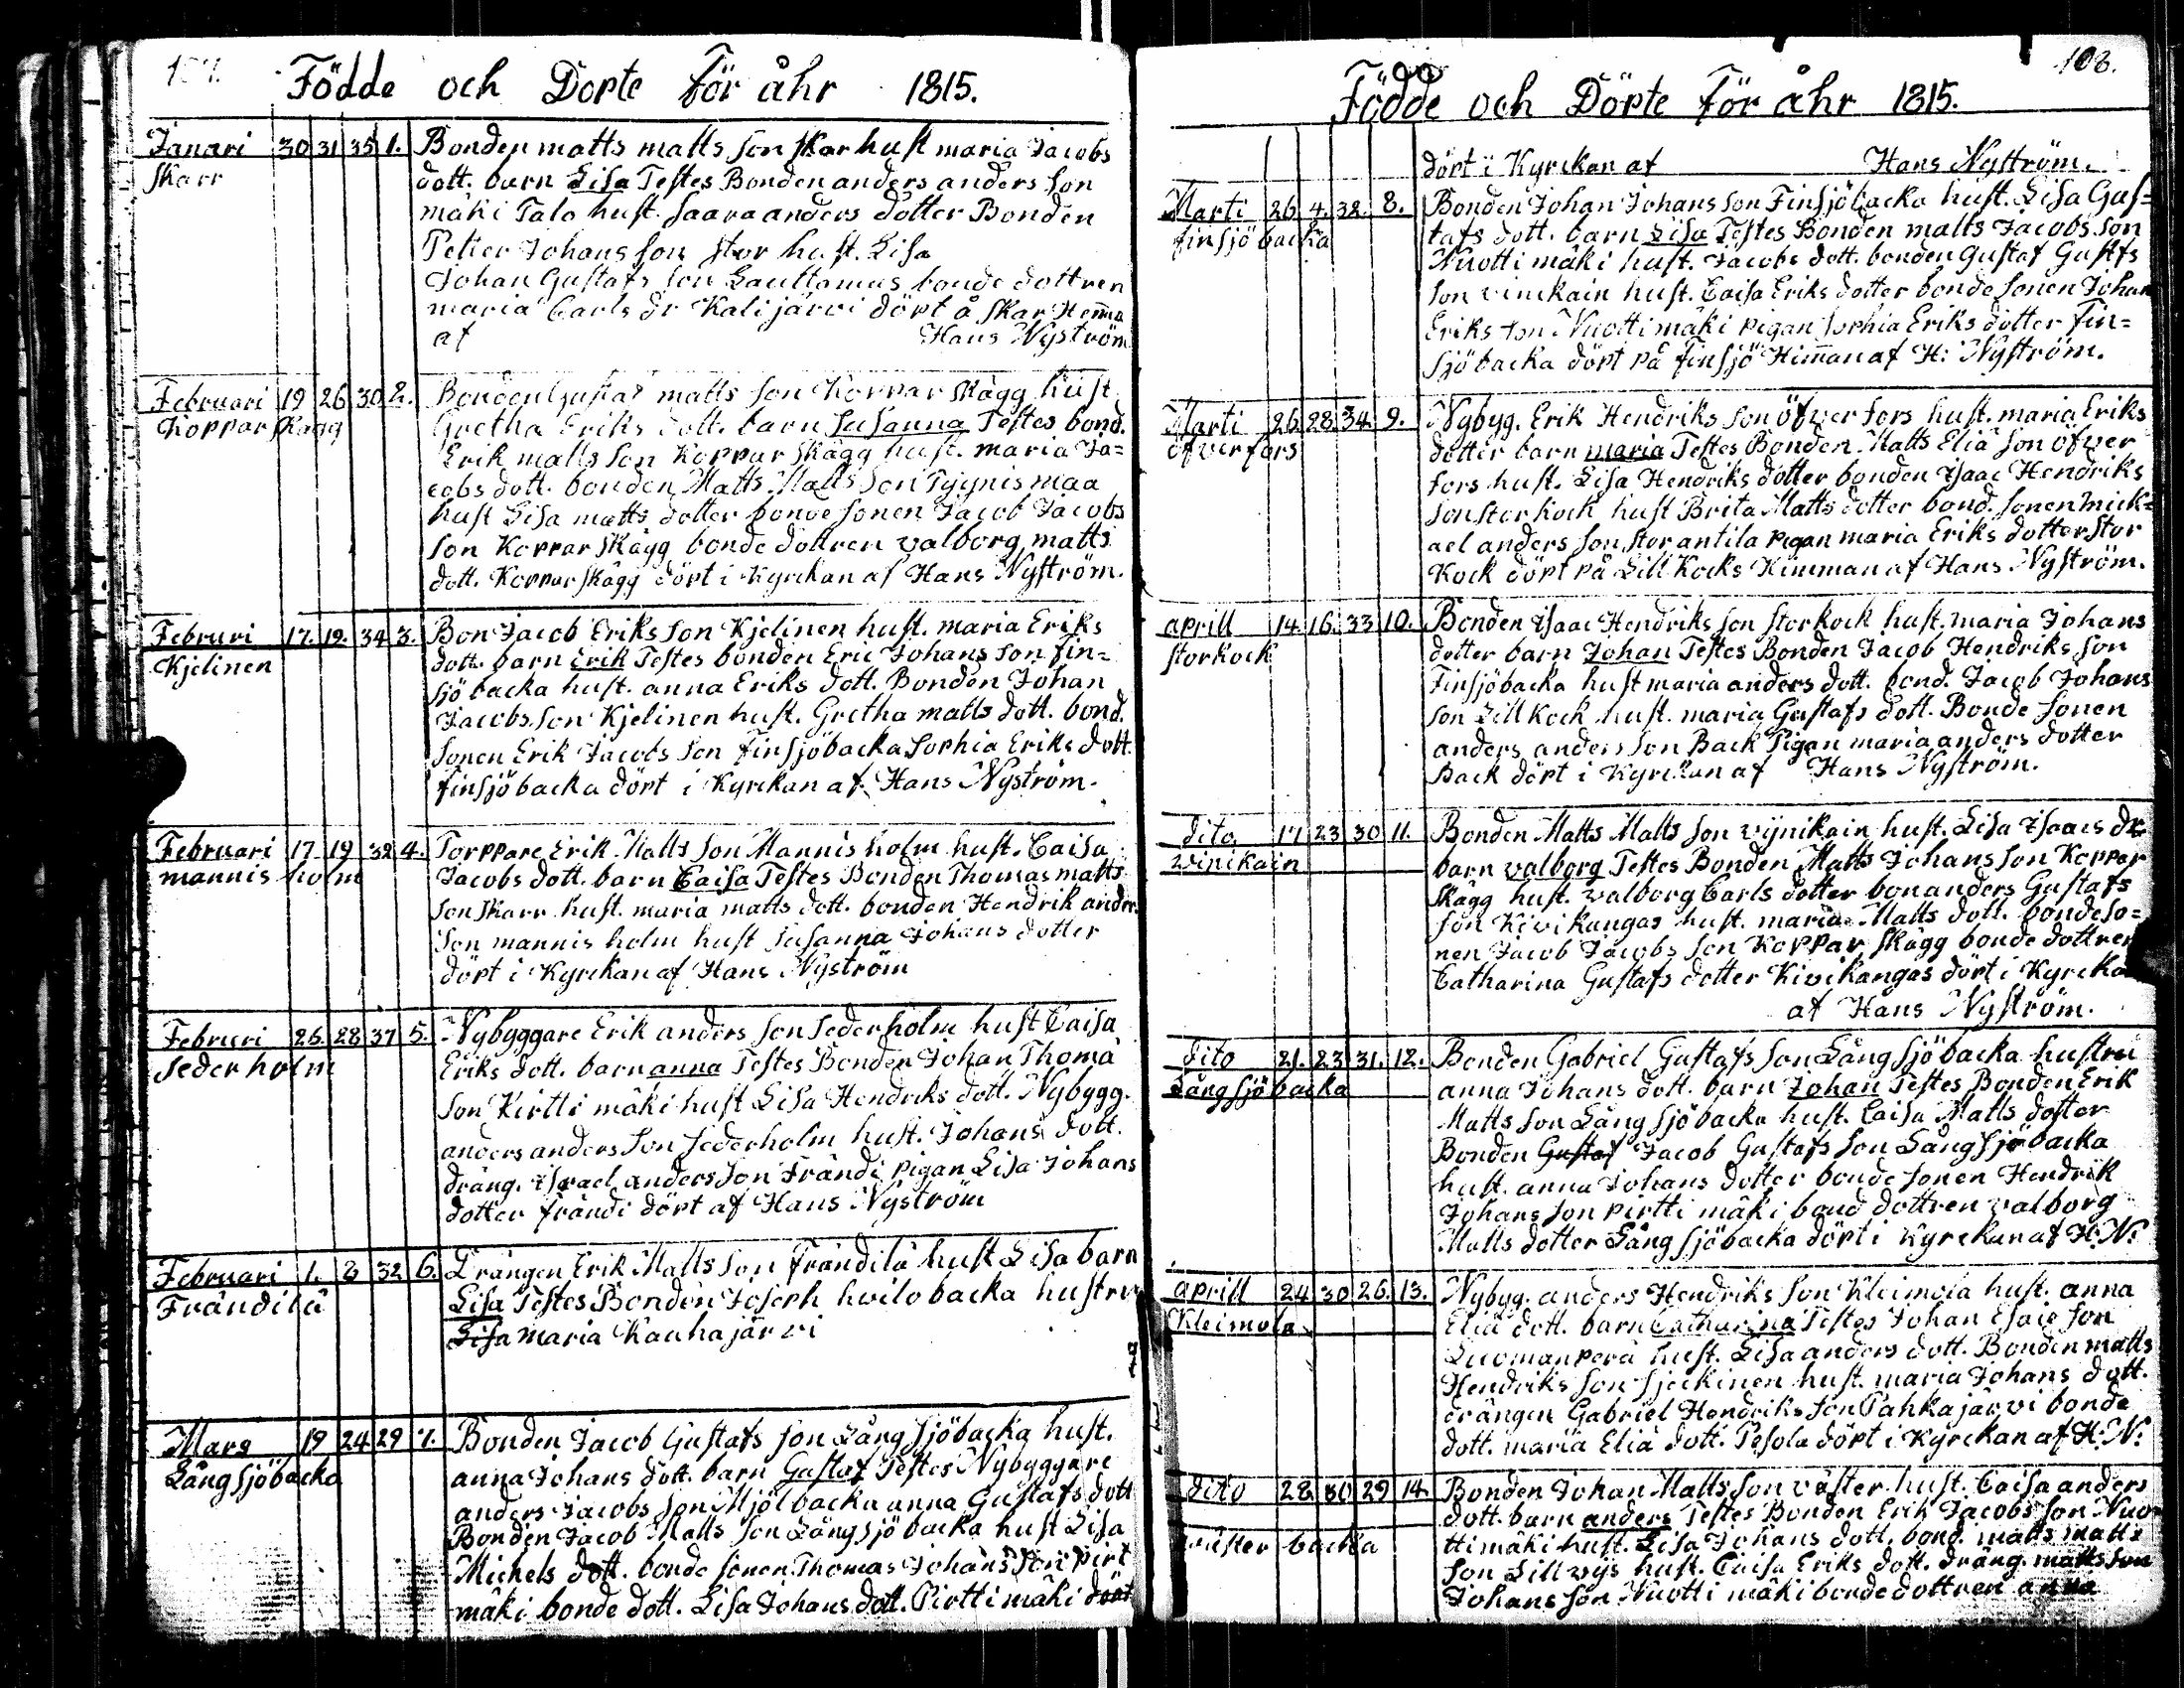 107.
Födde och Dopte för åhr 1815.
Janari 30 31 35 1. Bonden matts matts son skar hust maria Jacobs
Skarr dott. barn Lisa Testes Bonden anders anders son
mäki Talo hust. saara anders dotter Bonden
Petter Johans son stor hust. Lisa
Johan Gustafs son Lauttamus bonde dottren
maria Carls dr Kalijärvi döpt å skar Hem̄a
af Hans Nyström
Februari 19 26 30 2. Bonden Gustaf matts son Koppar skägg hust
Koppar skägg Gretha Eriks dott. barn Susanna Testes bond.
Erik matts son Koppar skägg hust. maria Ja=
cobs dott. bonden Matts Matts son Tyynismaa
hust Lisa matts dotter bonde sonen Jacob Jacobs
son Koppar skägg bonde dottren valborg matts
dott. Koppar skägg döpt i Kyrckan af Hans Nyström.
Februri 17. 19. 34 3. Bon Jacob Eriks son Kjelinen hust. maria Eriks
Kjelinen dott. barn Erik Testes bonden Eric Johans son fin=
sjö backa hust. anna Eriks dott. Bonden Johan
Jacobs son Kjelinen hust. Gretha matts dott. bond.
sonen Erik Jacobs son finsjöbacka Sophia Eriks dott.
finsjöbacka döpt i Kyrckan af Hans Nyström.
Februari 17. 19 32 4. Torppare Erik Matts son Mannis holm hust. Caisa
mannis holm Jacobs dott. barn Caisa Testes Bonden Thomas matts
son skarr hust. maria matts dott. bonden Hendrik anders
son mannis holm hust susanna Johans dotter
döpt i Kyrckan af Hans Nyström
Februri 26. 28 37 5. Nybyggare Erik anders son sederholm hust Caisa
sederholm Eriks dott. barn anna Testes Bonden Johan Thomä
son Kirtti mäki hust Lisa Hendriks dott. Nybygg.
anders anders son sederholm hust. Johans dott.
dräng. Israel anders son Frändi pigan Lisa Johans
dotter frändi döpt af Hans Nyström
Februari 1. 8 32 6. Drängen Erik Matts son frändilä hust Lisa barn
Frändilä Lisa Testes Bonden Joseph hvilobacka hustru
Lisa maria Kauhajärvi
Mars 19 24 29 7. Bonden Jacob Gustafs son Lång sjöbacka hust.
Lång sjöbacka anna Johans dott. barn Gustaf Testes Nybyggare
anders Jacobs son Mjölbacka anna Gustafs dott
Bonden Jacob Matts son Långsjö backa hust Lisa
Michels dott. bonde sonen Thomas Johans son pirt
mäki bonde dott. Lisa Johans dott. Pirtti mäki döpt
108.
Födde och Döpte för åhr 1815.
döpt i Kyrckan af Hans Nyström.
Marti 26 4. 32. 8. Bonden Johan Johans son Finsjöbacka hust. Lisa Gus=
finsjö backa tafs dott. barn Lisa Testes Bonden matts Jacobs son
Nuotti mäki hust. Jacobs dott. bonden Gustaf Gustfs
son vinikain hust. Caisa Eriks dotter bonde sonen Johan
Eriks son Nuotti mäki pigan sophia Eriks dotter fin=
sjö backa döpt på finsjö Him̄an af H: Nyström.
Marti 26. 28. 34. 9. Nybyg. Erik Hendriks son öfver fors hust. maria Eriks
öfverfors dotter barn maria Testes Bonden Matts Eliä son öfver
fors hust. Lisa Hendriks dotter bonden Isaac Hendriks
son stor kock hust Brita Matts dotter bond. sonen mick=
ael anders son stor antila pigan maria Eriks dotter stor
Kock döpt på Lill Kocks Himman af Hans Nyström.
aprill 14. 16. 33 10. Bonden Isaac Hendriks son storkock hust. maria Johans
storkock dotter barn Johan Testes Bonden Jacob Hendriks son
Finsjöbacka hust maria anders dott. bond. Jacob Johans
son Lill Kock hust. maria Gustafs dott. Bonde sonen
anders anders son Back Pigan maria anders dotter
Back döpt i Kyrckan af Hans Nyström.
dito 17 23 30 11. Bonden Matts Matts son vijnikain hust. Lisa Isaacs dr
winikain barn valborg Testes Bonden Matts Johans son Koppar
skägg hust. valborg Carls dotter bon anders Gustafs
son Kivikangas hust. maria Matts dott. bondeso=
nen Jacob Jacobs son Koppar skägg bonde dottren
Catharina Gustafs dotter Kivikangas döpt i Kyrcka
af Hans Nyström.
dito 21. 23 31. 12. Bonden Gabriel Gustafs son Lång sjöbacka hustru
Lång sjöbacka anna Johans dott. barn Johan Testes Bonden Erik
Matts son Lång sjöbacka hust. Caisa Matts dotter
Bonden Gustaf Jacob Gustafs son Lång sjöbacka
hust. anna Johans dotter bonde sonen Hendrik
Johans son pirtti mäki bond dottren valborg
Matts dotter Lång sjöbacka döpt i Kyrckan af H:N:
aprill 24 30 26. 13. Nybyg. anders Hendriks son Kleimola hust. anna
Kleimola Eliä dott. barn Catharina Testes Johan Esaie son
Luomanperä hust. Lisa anders dott. Bonden matts
Hendriks son sjeckinen hust. maria Johans dott.
drängen Gabriel Hendriks son Pahkajärvi bonde
dott. maria Eliä dott. Pesola döpt i Kyrckan af H:N:
dito 28. 30 29 14. Bonden Johan Matts son väster hust. Caisa anders
wäster backa dott. barn anders Testes Bonden Erik Jacobs son Nuo
tti mäki hust. Lisa Johans dott. bond. matts matts
son Lill wijs hust. Caisa Eriks dott. dräng. matts son
Johans son Nuotti mäki bonde dottren anna